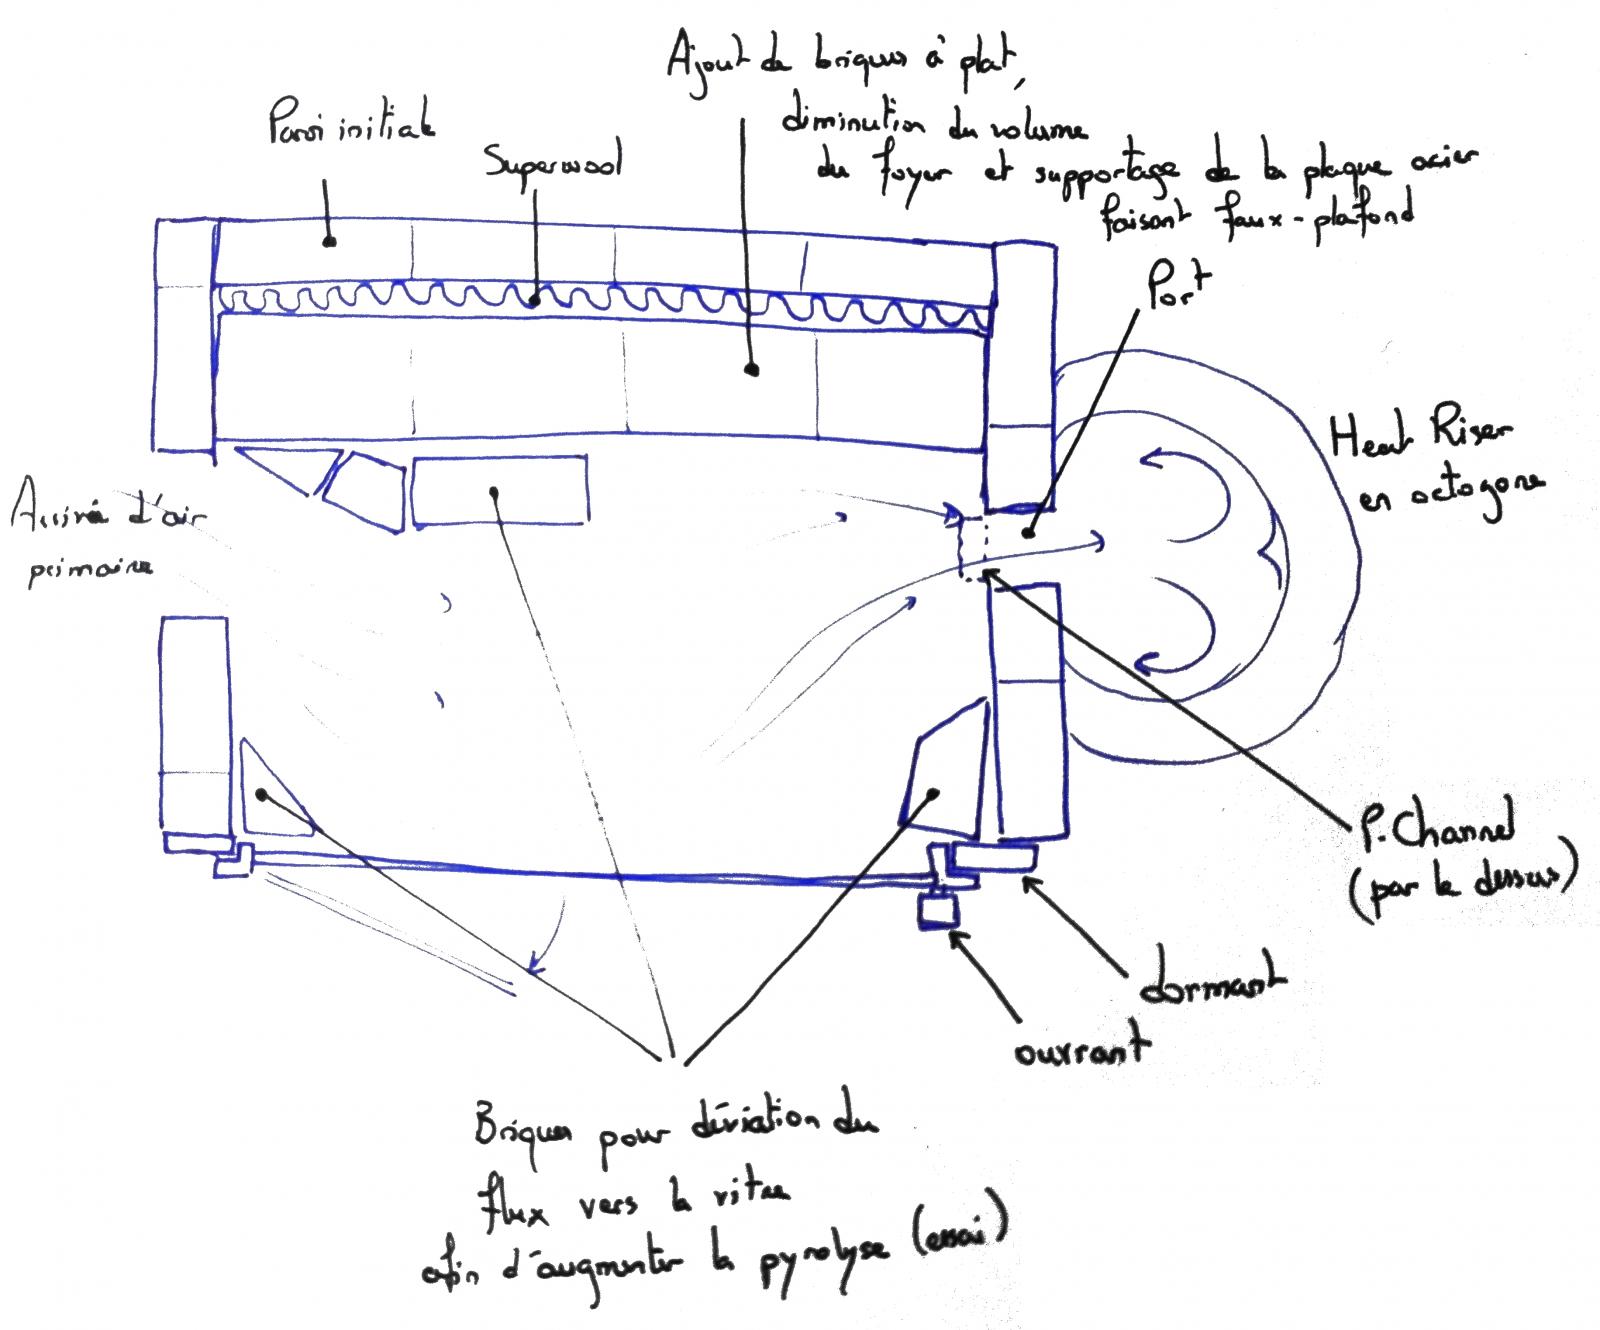 Ajout de briques à plat,
diminution du volume
du foyer et supportage de la plaque acier
faisant faux-plafond
Paroi initiale
Superwool
Port
Heat Riser
en octogone
Arrivée d'air
primaire
P.Channel
(par le dessus)
dormant
ouvrant
Briques pour déviation du
flux vers la vitre
afin d'augmenter la pyrolyse (essai)